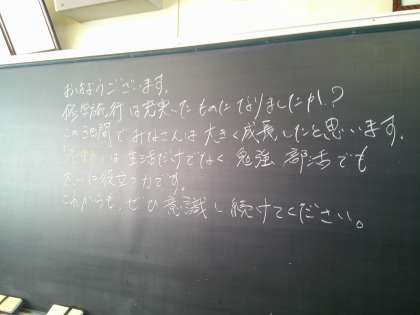 おはようございます。
修学旅行は充実したものになりましたか？
この3日間でみなさんは大きく成長したと思います。
は生活だけでなく 勉強 部活でも
に役立つ力です。
これからも、ぜひ意識し続けてください。